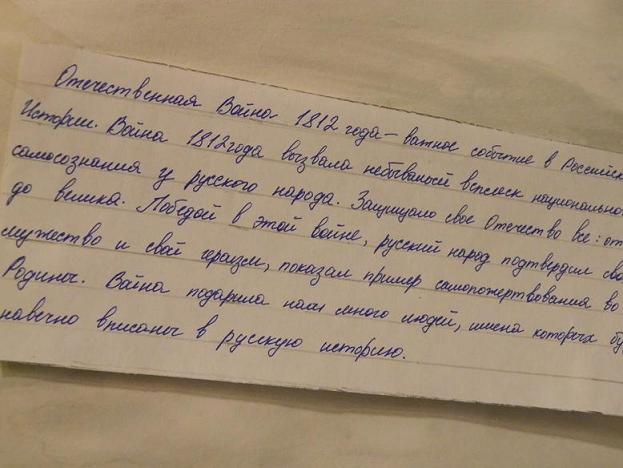 Отечественная Война 1812 года - важное событие в Российск
Истории. Война 1812 года вызвала небывалый всплеск национально
самосознания у русского народа. Защищало свое Отечество все: от
до велика. Победой в этой войне, русский народ подтвердил сво
мужество и свой героизм, показал пример самопожертвования во
Родины. Война подарила нам много людей, имена которых бу
навечно вписаны в русскую историю.